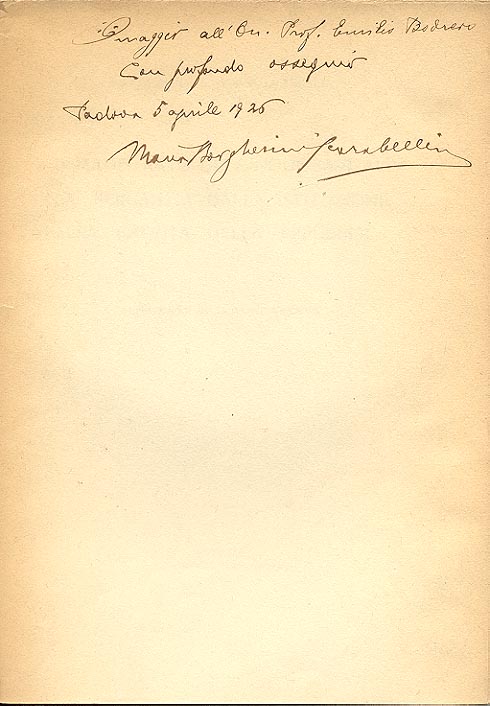 Omaggio all'On. Prof. Emilio Bodrero
Con profondo ossequio
Padova 5 aprile 1926
Maria Borgherini Scarabellin